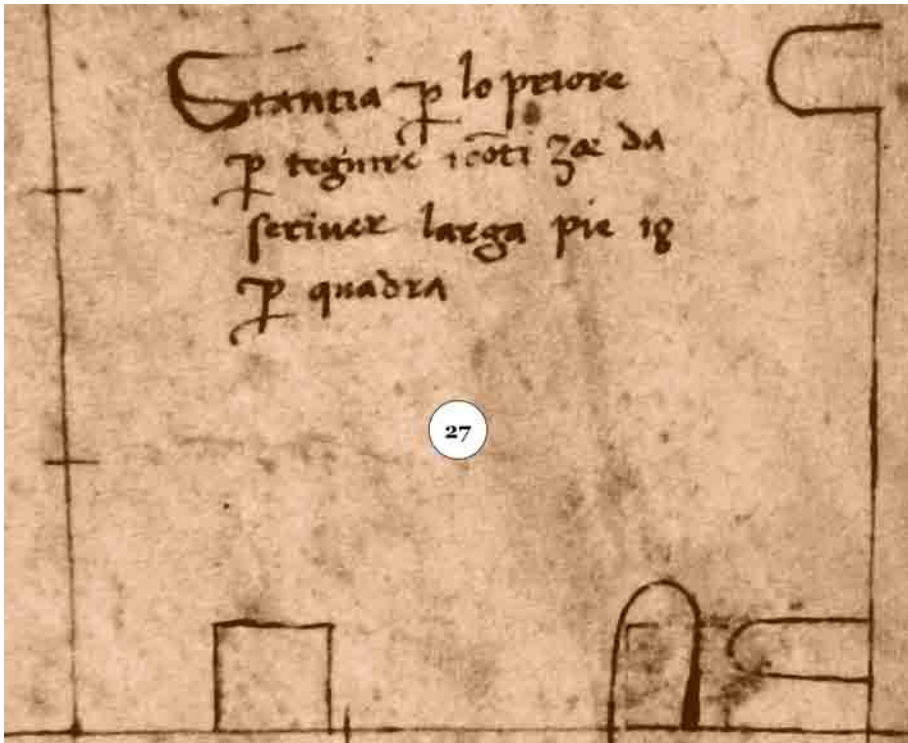 Stantia p̱ lo priore
p̱ tegnire i cōti zoe da
scriver larga pie 18
p̱ quadra
27